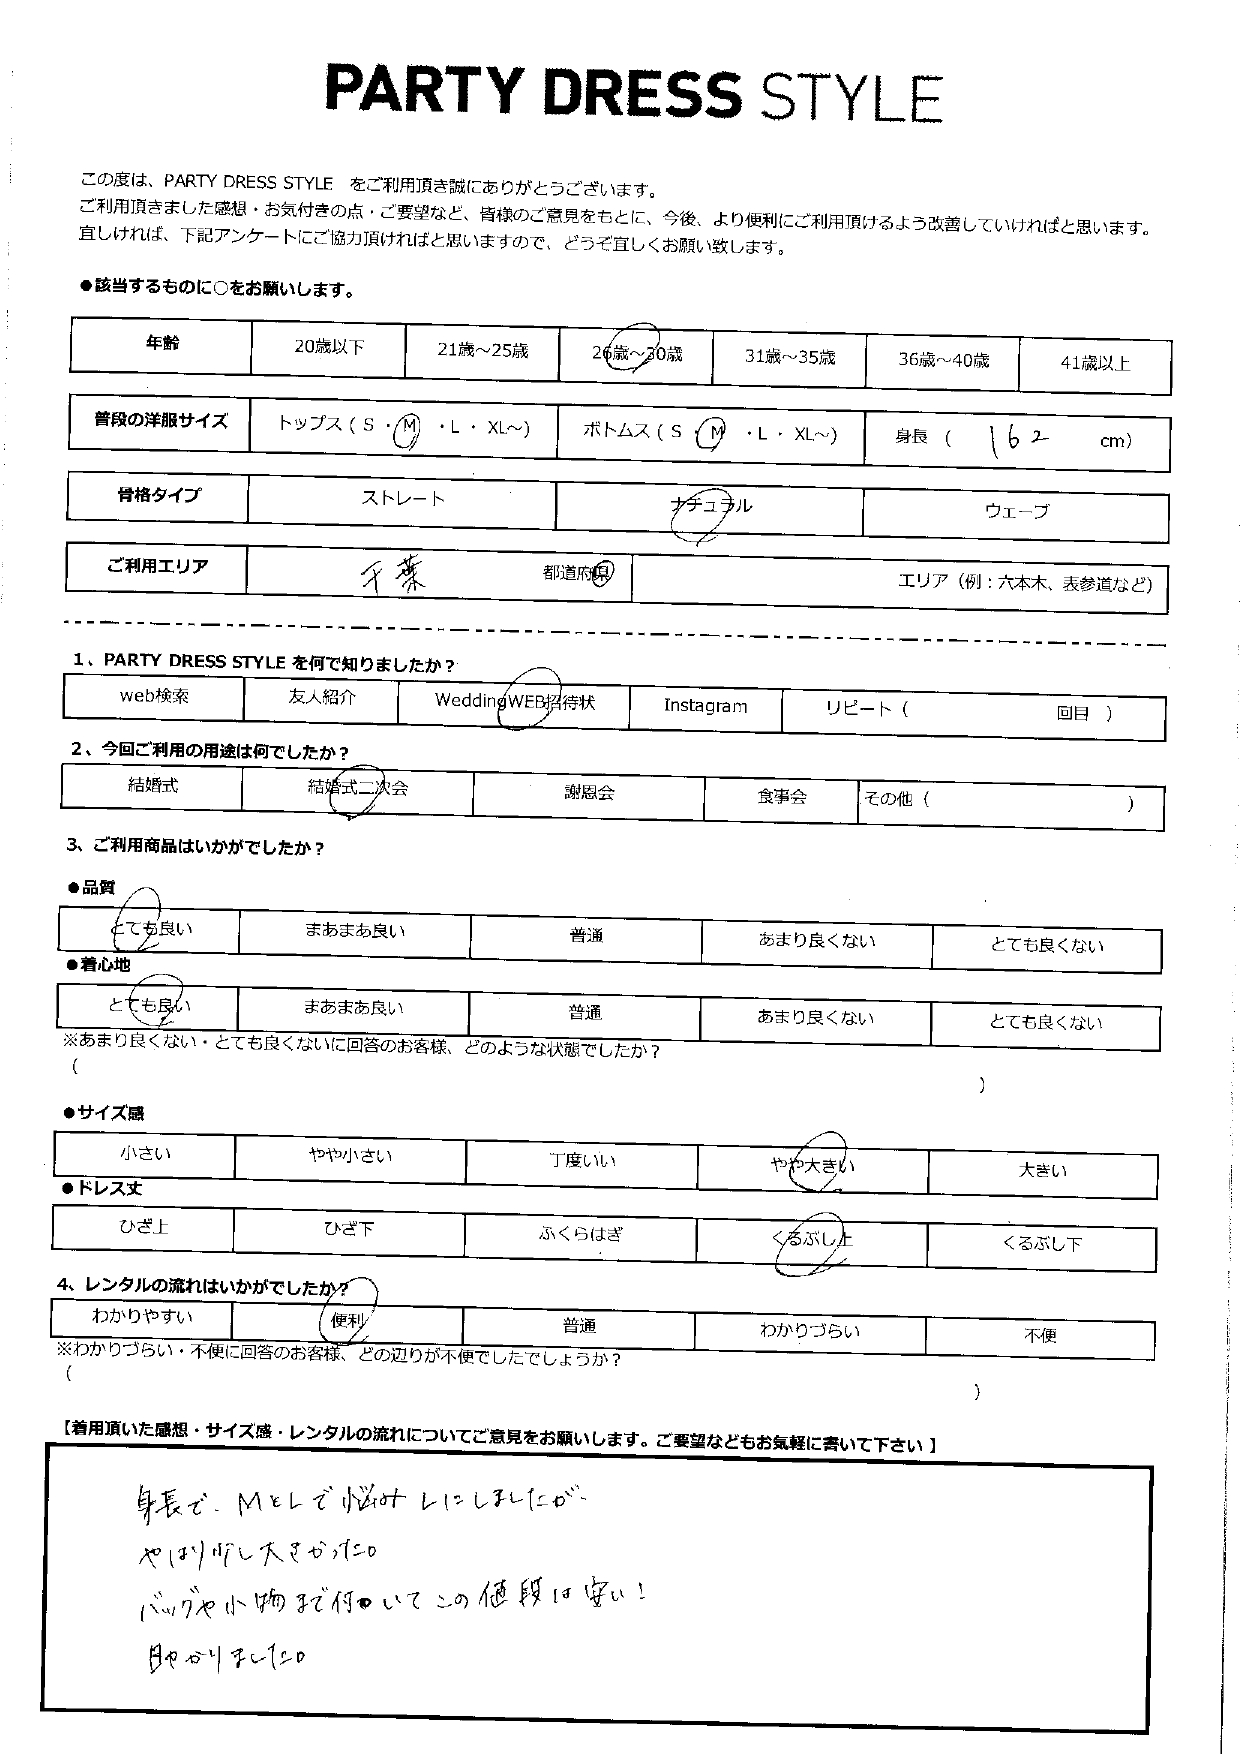 PARTY DRESS STYLE
この度は、PARTY DRESS STYLE をご利用頂き誠にありがとうございます。
ご利用頂きました感想・お気付きの点・ご要望など、皆様のご意見をもとに、今後、より便利にご利用頂けるよう改善していければと思います。
宜しければ、下記アンケートにご協力頂ければと思いますので、どうぞ宜しくお願い致します。
●該当するものに○をお願いします。
年齢 20歳以下 21歳～25歳 26歳～30歳 31歳～35歳 36歳～40歳 41歳以上
普段の洋服サイズ トップス ( S ・ M ・L ・ XL～) ボトムス ( S ・ M ・L ・ XL～) 身長 ( 162 cm)
骨格タイプ ストレート ナチュラル ウェーブ
ご利用エリア 千葉 都道府県 エリア（例：六本木、表参道など）
1、PARTY DRESS STYLE を何で知りましたか？
web検索 友人紹介 WeddingWEB招待状 Instagram リピート ( 回目 )
2、今回ご利用の用途は何でしたか？
結婚式 結婚式二次会 謝恩会 食事会 その他 ( )
3、ご利用商品はいかがでしたか？
●品質
とても良い まあまあ良い 普通 あまり良くない とても良くない
●着心地
とても良い まあまあ良い 普通 あまり良くない とても良くない
※あまり良くない・とても良くないに回答のお客様、どのような状態でしたか？
( )
●サイズ感
小さい やや小さい 丁度いい やや大きい 大きい
●ドレス丈
ひざ上 ひざ下 ふくらはぎ くるぶし上 くるぶし下
4、レンタルの流れはいかがでしたか？
わかりやすい 便利 普通 わかりづらい 不便
※わかりづらい・不便に回答のお客様、どの辺りが不便でしたでしょうか？
( )
【着用頂いた感想・サイズ感・レンタルの流れについてご意見をお願いします。ご要望などもお気軽に書いて下さい 】
身長で、MとLで悩みLにしましたが、
やはり少し大きかった。
バッグや小物まで付いてこの値段は安い！
助かりました。